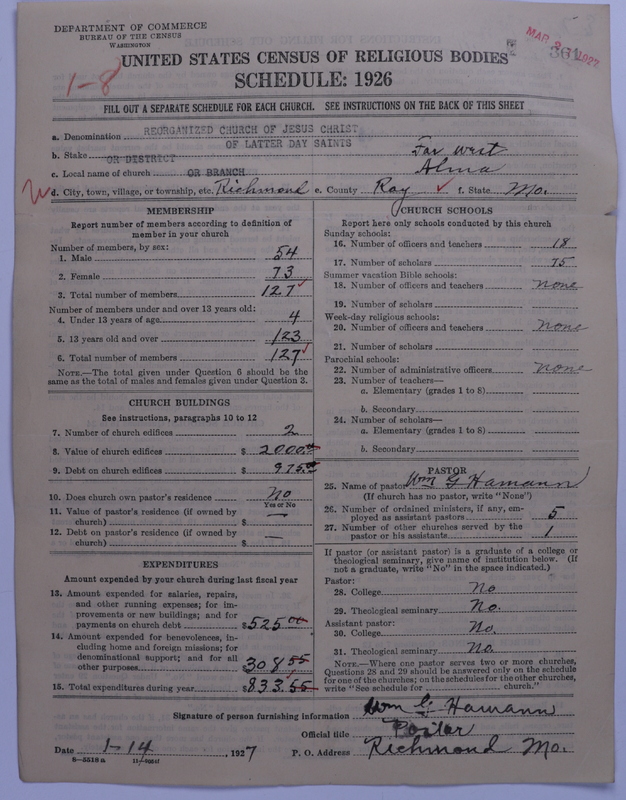 DEPARTMENT OF COMMERCE
BUREAU OF THE CENSUS
WASHINGTON
1-8
MAR 2 1927
UNITED STATES CENSUS OF RELIGIOUS BODIES
SCHEDULE: 1926
FILL OUT A SEPARATE SCHEDULE FOR EACH CHURCH. SEE INSTRUCTIONS ON THE BACK OF THIS SHEET
a. Denomination REORGANIZED CHURCH OF JESUS CHRIST
OF LATTER DAY SAINTS
b. Stake OR DISTRICT Far West
c. Local name of church OR BRANCH Alma
d. City, town, village, or township, etc. Richmond e. County Ray f. State Mo.
MEMBERSHIP
Report number of members according to definition of
member in your church
Number of members, by sex:
1. Male 54
2. Female 73
3. Total number of members 127
Number of members under and over 13 years old:
4. Under 13 years of age 4
5. 13 years old and over 123
6. Total number of members 127
NOTE.—The total given under Question 6 should be
same as the total of males and females given under Question 3.
CHURCH BUILDINGS
See instructions, paragraphs 10 to 12
7. Number of church edifices 2
8. Value of church edifices $ 2000.00
9. Debt on church edifices $ 975.00
10. Does church own pastor's residence No
Yes or No
11. Value of pastor's residence (if owned by
church) $ —
12. Debt on pastor's residence (if owned by
church) $ —
EXPENDITURES
Amount expended by your church during last fiscal year
13. Amount expended for salaries, repairs,
and other running expenses; for im-
provements or new buildings; and for
payments on church debt $525 00
14. Amount expended for benevolences, in-
cluding home and foreign missions; for
denominational support; and for all
other purposes 308 55
15. Total expenditures during year $833.55
CHURCH SCHOOLS
Report here only schools conducted by this church
Sunday schools:
16. Number of officers and teachers 18
17. Number of scholars 75
Summer vacation Bible schools:
18. Number of officers and teachers none
19. Number of scholars
Week-day religious schools:
20. Number of officers and teachers none
21. Number of scholars
Parochial schools:
22. Number of administrative officers none
23. Number of teachers—
a. Elementary (grades 1 to 8)
b. Secondary
24. Number of scholars—
a. Elementary (grades 1 to 8)
b. Secondary
PASTOR
25. Name of pastor Wm G Hamann
(If church has no pastor, write "None")
26. Number of ordained ministers, if any, em-
ployed as assistant pastors 5
27. Number of other churches served by the
pastor or his assistants 1
If pastor (or assistant pastor) is a graduate of a college or
theological seminary, give name of institution below. (If
not a graduate, write "No" in the space indicated.)
Pastor:
28. College No
29. Theological seminary No.
Assistant pastor:
30. College No.
31. Theological seminary No.
NOTE.—Where one pastor serves two or more churches,
Questions 28 and 29 should be answered only on the schedule
for one of the churches; on the schedules for the other churches,
write "See schedule for church."
Signature of person furnishing information Wm G Hamann
Official title Pastor
Date 1-14, 1927 P. O. Address Richmond Mo.
8—5518 a